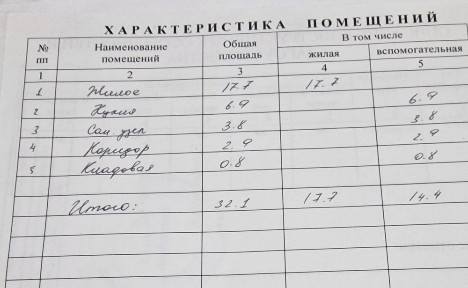 ХАРАКТЕРИСТИКА ПОМЕЩЕНИЙ
№ пп Наименование помещений Общая площадь В том числе
жилая вспомогательная
1 2 3 4 5
1 Жилое 17.7 17.7
2 Кухня 6.9 6.9
3 Сан. узел 3.8 3.8
4 Коридор 2.9 2.9
5 Кладовая 0.8 0.8
Итого: 32.1 17.7 14.4